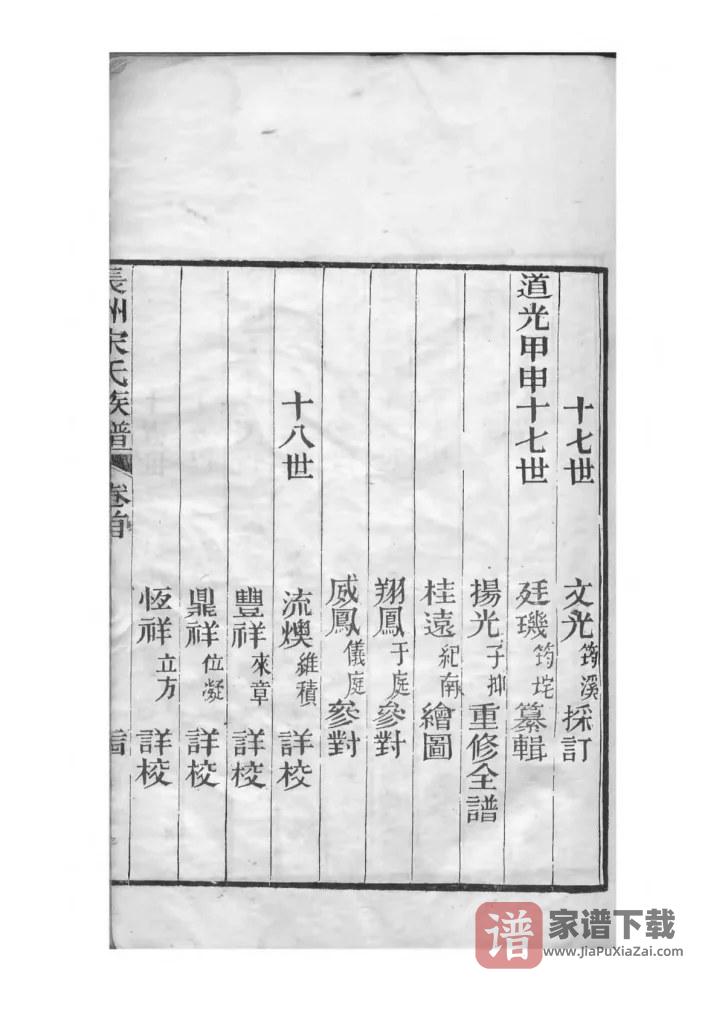 十七世 文光筠溪採訂
道光甲申十七世 廷璣筠坨纂輯
揚光子抑重修全譜
桂遠紀南繪圖
翔鳳于庭參對
威鳳儀庭參對
十八世 流燠維積詳校
豐祥來章詳校
鼎祥位凝詳校
恆祥立方詳校
長洲宋氏族譜 卷首
家谱下载
www.JiaPuXiaZai.com
谱